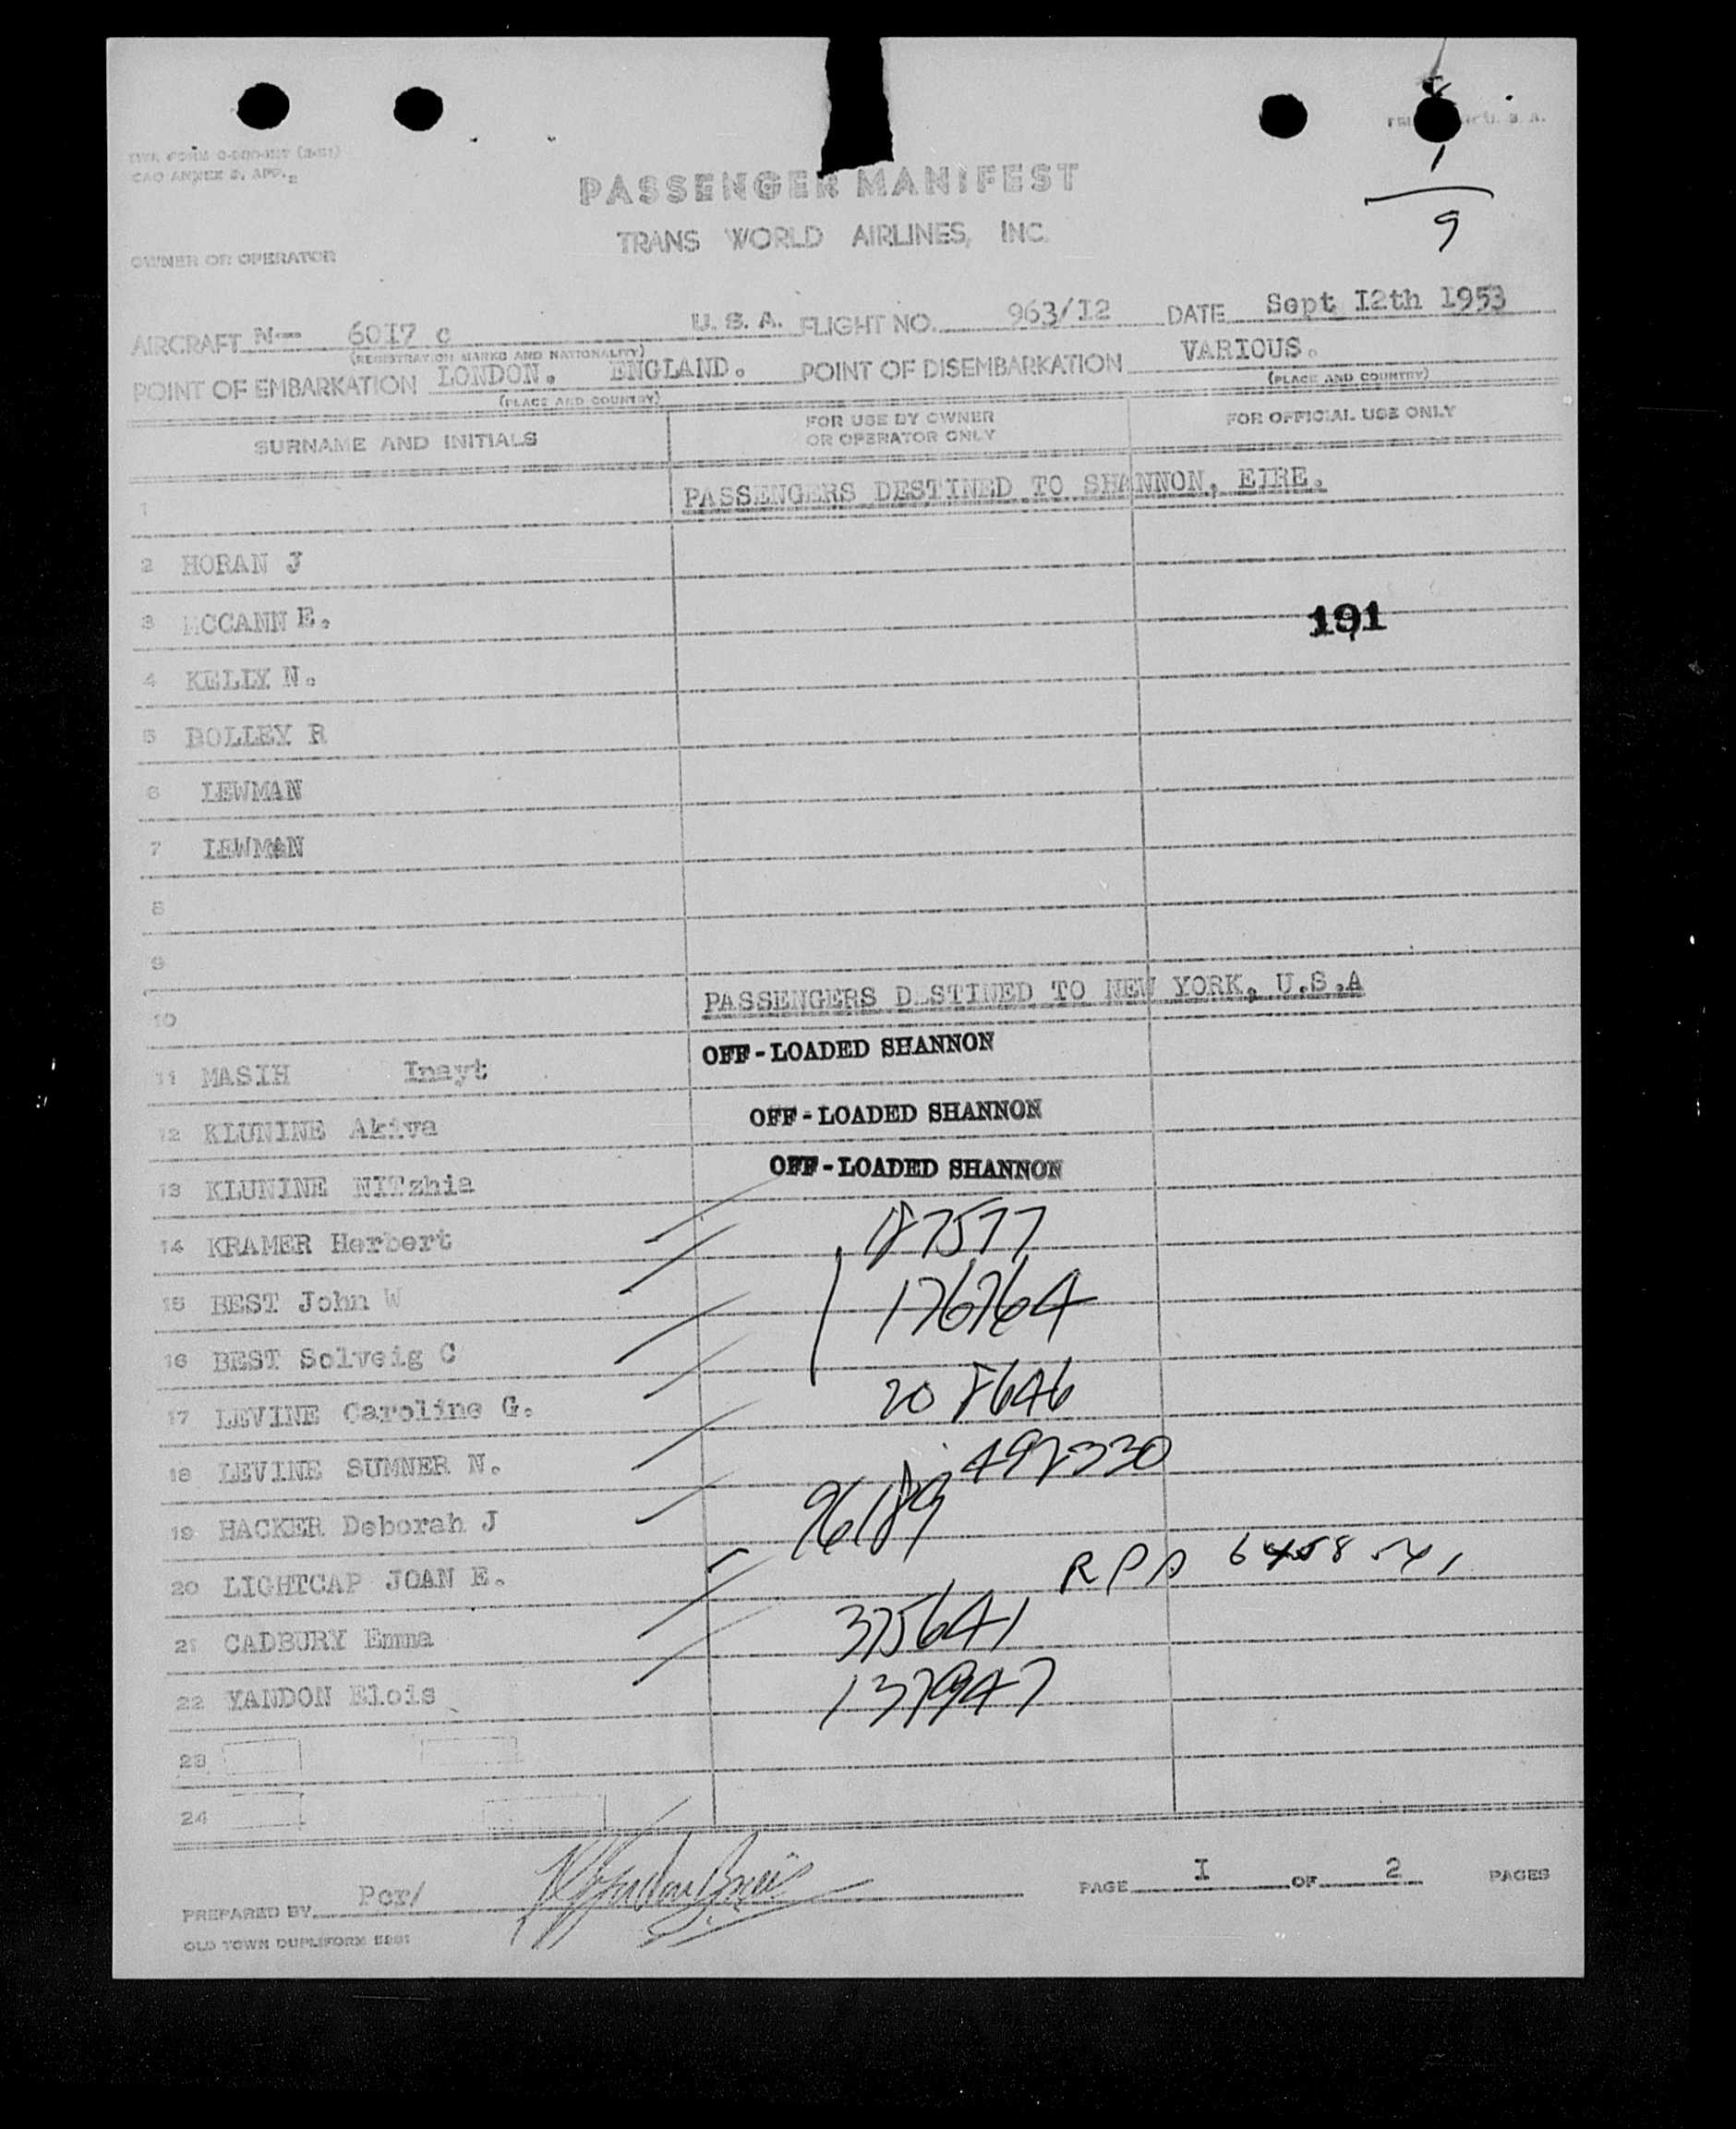 TWA FORM
CAO ANNEX 9, APP. 2
U. S. A.
1
9
PASSENGER MANIFEST
TRANS WORLD AIRLINES, INC.
OWNER OR OPERATOR
AIRCRAFT N-- 6017 c U. S. A. FLIGHT NO. 963/I2 DATE Sept I2th 1953
(REGISTRATION MARKS AND NATIONALITY)
POINT OF EMBARKATION LONDON. ENGLAND. POINT OF DISEMBARKATION VARIOUS.
(PLACE AND COUNTRY) (PLACE AND COUNTRY)
SURNAME AND INITIALS FOR USE BY OWNER OR OPERATOR ONLY FOR OFFICIAL USE ONLY
1 PASSENGERS DESTINED TO SHANNON, EIRE.
2 HORAN J
3 MCCANN E. 191
4 KELLY N.
5 BOLLEY R
6 LEWMAN
7 LEWMAN
8
9
10 PASSENGERS DESTINED TO NEW YORK, U.S.A
11 MASIH Inayt OFF-LOADED SHANNON
12 KLUNINE Akiva OFF-LOADED SHANNON
13 KLUNINE NITzhia OFF-LOADED SHANNON
14 KRAMER Herbert 187577
15 BEST John W 176764
16 BEST Solveig C
17 LEVINE Caroline G. 208646
18 LEVINE SUMNER N. 492330
19 HACKER Deborah J 96189
20 LIGHTCAP JOAN E. RPA
21 CADBURY Emma 375641
22 YANDON Elois 137947
23
24
PREPARED BY Per/ PAGE I OF 2 PAGES
OLD TOWN DUPLIFORM